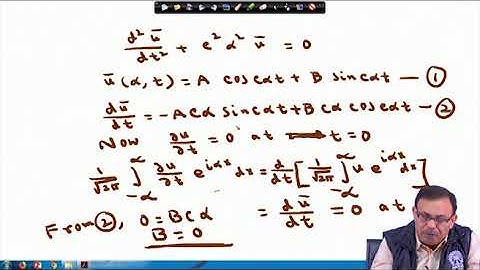 d²ū/dt² + c²α²ū = 0
ū(α,t) = A cos cαt + B sin cαt — ①
dū/dt = -Acα sin cαt + B cα cos cαt - ②
Now ∂u/∂t = 0 at t = 0
1/√2π ∫_{-α}^{α} ∂u/∂t e^{iαx} dx = d/dt [1/√2π ∫_{-α}^{α} u e^{iαx} dx]
= dū/dt = 0 at
From ②, 0 = B c α
B = 0